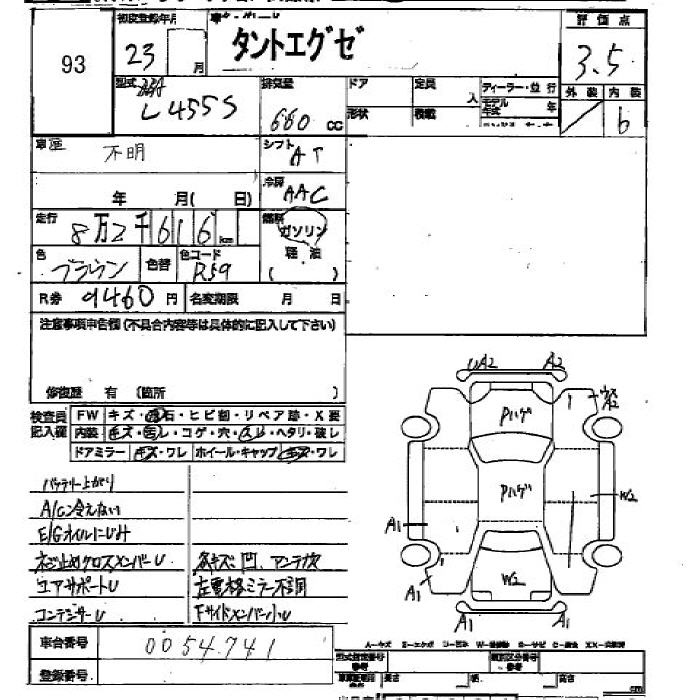 93
初度登録年月
23 月
タントエグゼ
評価点
3.5
外装 内装
6
型式 DBA
L455S
排気量
660 CC
ドア
形状
定員 人
積載
ディーラー・並行
モデル年式 年
車歴 不明
年 月( 日)
シフト AT
冷房 AAC
走行 8万2千616km
燃料 ガソリン
軽油
( )
色 ブラウン
色替
色コード R59
R券 9460円
名変期限 月 日
注意事項申告欄(不具合内容等は具体的に記入して下さい)
修復歴 有 (箇所 )
検査員記入欄
FW キズ・飛石・ヒビ割・リペア跡・X要
内装 キズ・汚レ・コゲ・穴・スレ・ヘタリ・破レ
ドアミラー キズ・ワレ ホイール・キャップ キズ・ワレ
バッテリー上がり
A/C冷えない
E/Gオイルにじみ
ネジ止めクロスメンバーU
コアサポートU
コンデンサーU
各キズ凹、アンテナ欠
左電格ミラー不調
Fサイドメンバー小U
UA2
A2
ウスA2
Pハゲ
Pハゲ
W2
A1
W2
A1
A1
A1
A1
車台番号 0054741
登録番号
型式指定番号
類別区分番号
長さ 幅 高さ